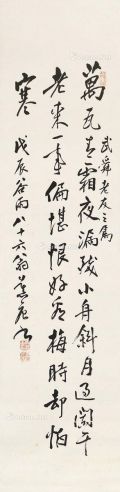 萬瓦青霜夜漏殘小舟斜月過闌干
老來一事偏堪恨好看梅時却怕
寒
武舜老友之屬
戊辰谷雨八十六翁蒼虬